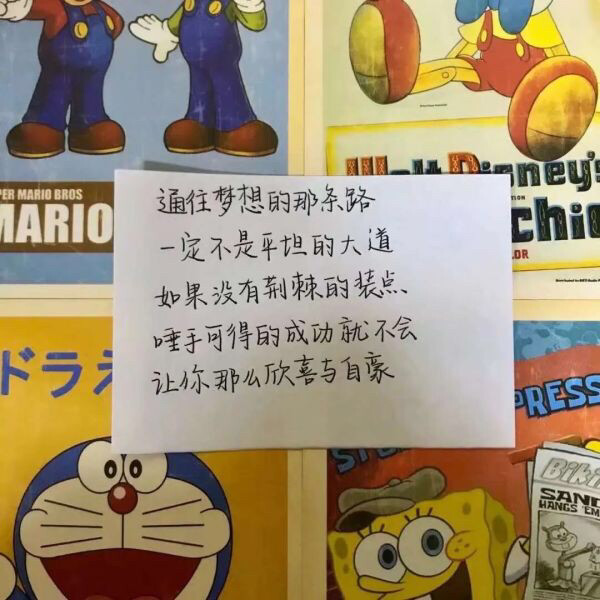 PER MARIO BROS
MARIO
Walt Disney's
chi
OR
通往梦想的那条路
一定不是平坦的大道
如果没有荆棘的装点
唾手可得的成功就不会
让你那么欣喜与自豪
ドラえ
PRESS
Biki
SAND
HANGS 'EM